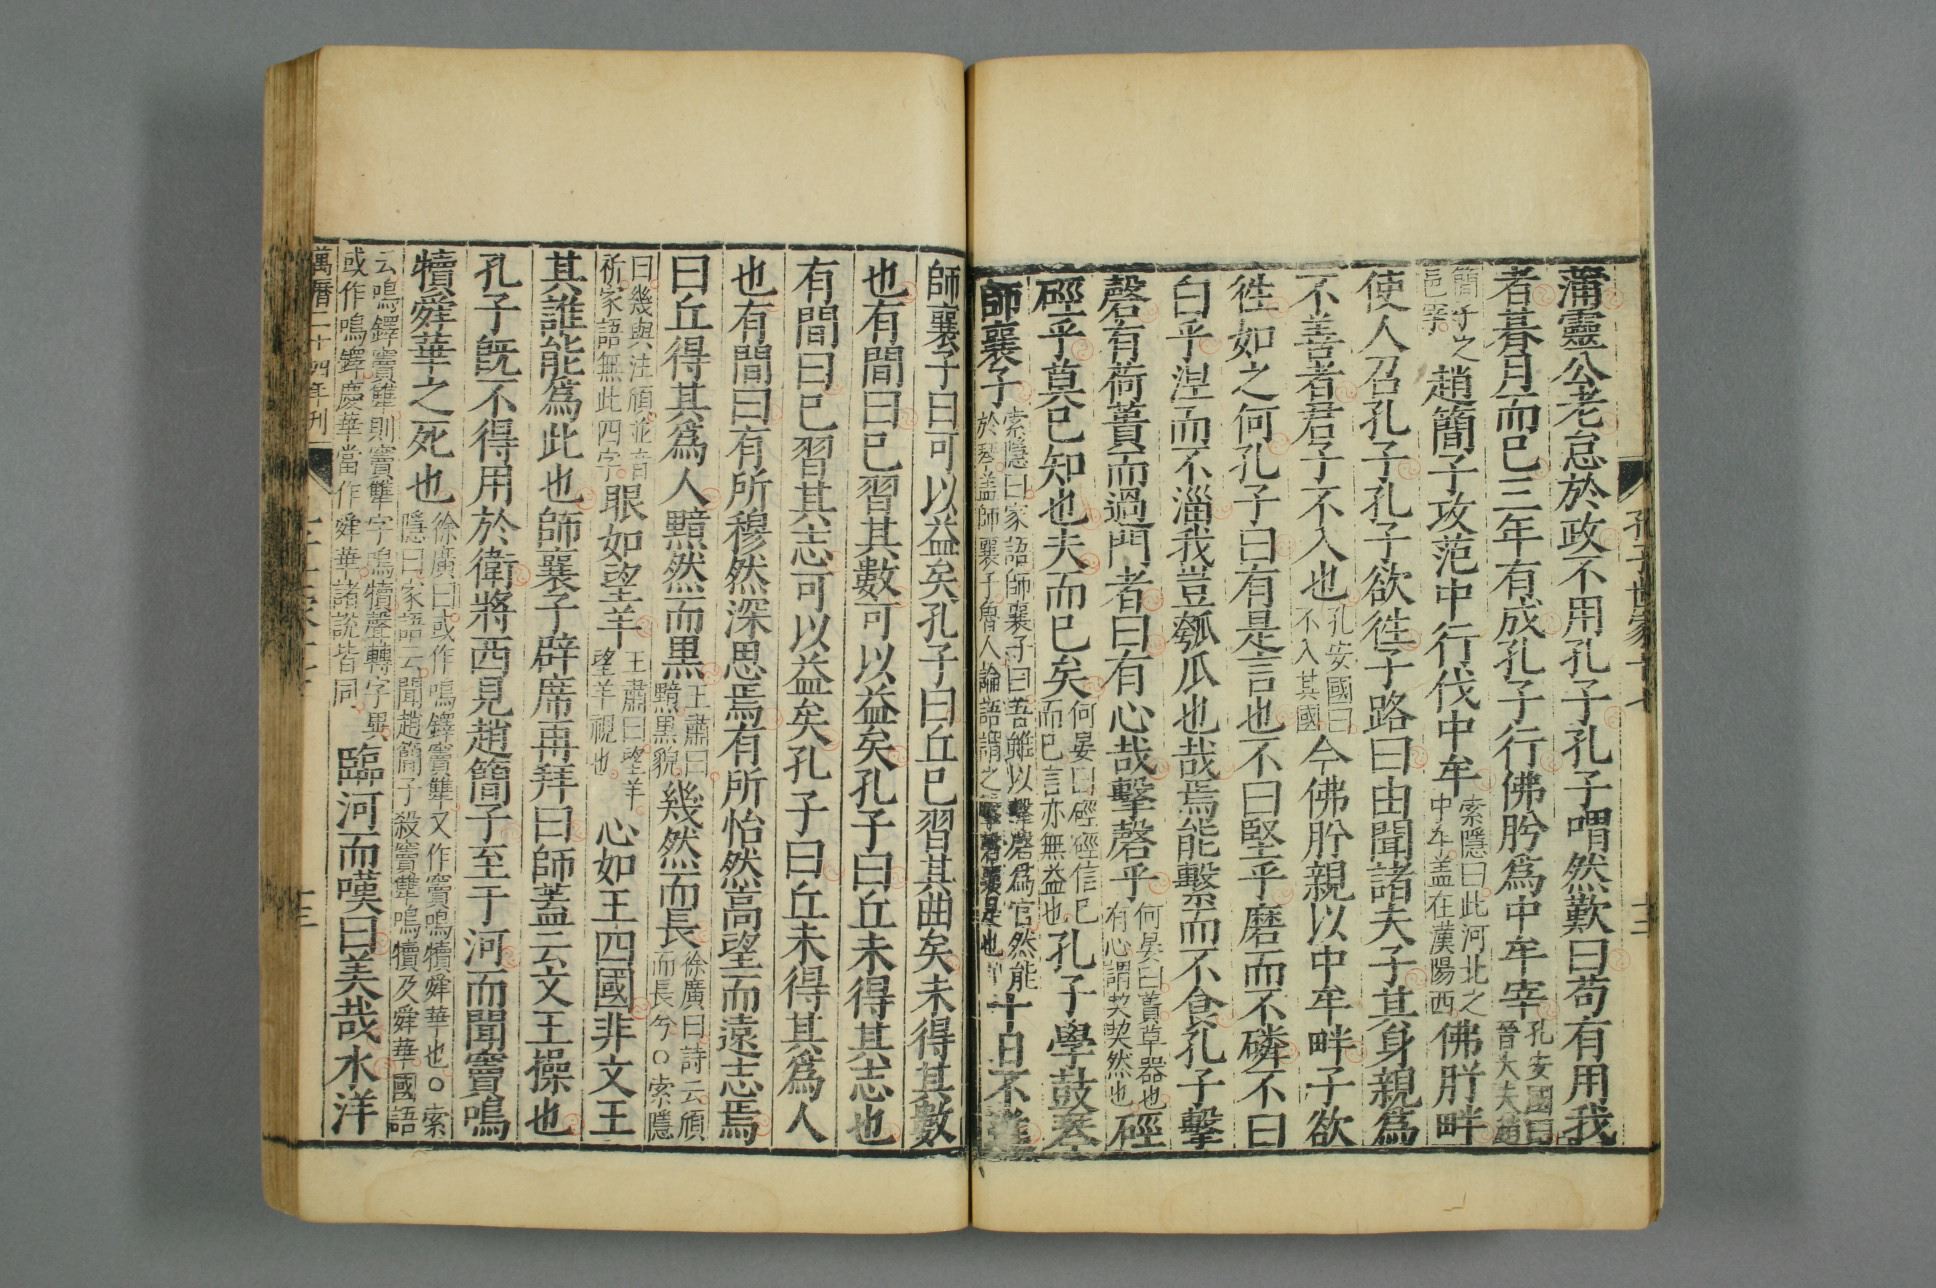 孔子世家十七
十三
蒲靈公老怠於政不用孔子孔子喟然歎曰苟有用我
者朞月而已三年有成孔子行佛肸爲中牟宰孔安國曰晉大夫趙
簡子之邑宰趙簡子攻范中行伐中牟索隱曰此河北之中牟盖在漢陽西佛肸畔
使人召孔子孔子欲徃子路曰由聞諸夫子其身親爲
不善者君子不入也孔安國曰不入其國今佛肸親以中牟畔子欲
徃如之何孔子曰有是言也不曰堅乎磨而不磷不曰
白乎涅而不淄我豈瓠瓜也哉焉能繫而不食孔子擊
磬有荷蕢而過門者曰有心哉擊磬乎何晏曰蕢草器也有心謂契契然也硜
硜乎莫已知也夫而已矣何晏曰硜硜信已而已言亦無益也孔子學鼓琴
師襄子索隱曰家語師襄子曰吾雖以擊磬爲官然能於琴盖師襄子魯人論語謂之擊磬襄是也十日不進
師襄子曰可以益矣孔子曰丘已習其曲矣未得其數
也有間曰已習其數可以益矣孔子曰丘未得其志也
有間曰已習其志可以益矣孔子曰丘未得其爲人
也有間曰有所穆然深思焉有所怡然高望而遠志焉
曰丘得其爲人黯然而黑王肅曰黯黑貌幾然而長徐廣曰詩云頎而長兮○索隱
曰幾與注頎並音祈家語無此四字眼如望羊王肅曰望羊望羊視也心如王四國非文王
其誰能爲此也師襄子辟席再拜曰師蓋云文王操也
孔子旣不得用於衛將西見趙簡子至于河而聞竇鳴
犢舜華之死也徐廣曰或作鳴鐸竇犨又作竇鳴犢舜華也○索隱曰家語云聞趙簡子殺竇犨鳴犢及舜華國語
云鳴鐸竇犨則竇犨字鳴犢聲轉字異或作鳴鐸慶華當作舜華諸說皆同臨河而嘆曰美哉水洋
萬曆二十四年刊
十三